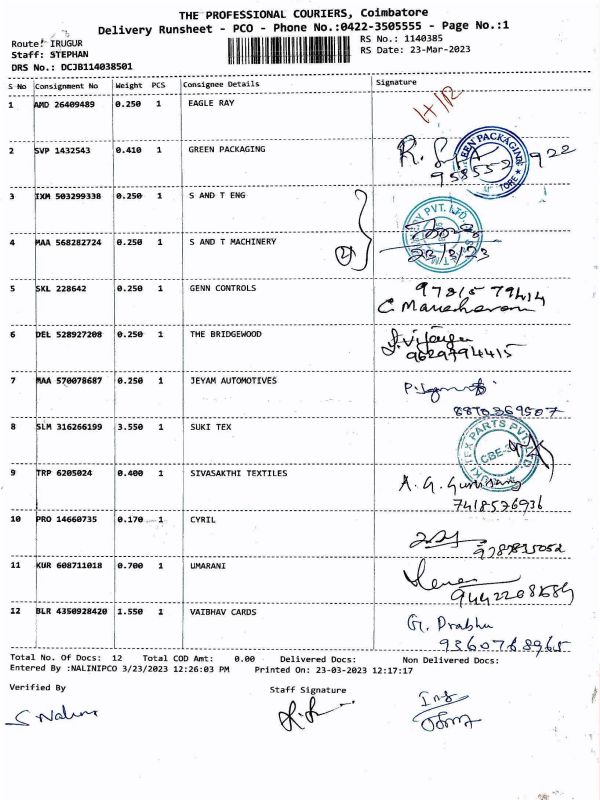 THE PROFESSIONAL COURIERS, Coimbatore
Delivery Runsheet - PCO - Phone No.:0422-3505555 - Page No.:1
Route: IRUGUR
RS No.: 1140385
Staff: STEPHAN
RS Date: 23-Mar-2023
DRS No.: DCJB114038501
S No Consignment No Weight PCS Consignee Details Signature
1 AMD 26409489 0.250 1 EAGLE RAY
2 SVP 1432543 0.410 1 GREEN PACKAGING
3 IXM 503299338 0.250 1 S AND T ENG
4 MAA 568282724 0.250 1 S AND T MACHINERY
(2) 23/3/23
5 SKL 228642 0.250 1 GENN CONTROLS
6 DEL 528927208 0.250 1 THE BRIDGEWOOD
9629794415
7 MAA 570078687 0.250 1 JEYAM AUTOMOTIVES
8870369507
8 SLM 316266199 3.550 1 SUKI TEX
9 TRP 6205024 0.400 1 SIVASAKTHI TEXTILES
7418526936
10 PRO 14660735 0.170 1 CYRIL
11 KUR 608711018 0.700 1 UMARANI
12 BLR 4350928420 1.550 1 VAIBHAV CARDS
G. Prabhu
9360768965
Total No. Of Docs: 12 Total COD Amt: 0.00 Delivered Docs: Non Delivered Docs:
Entered By :NALINIPCO 3/23/2023 12:26:03 PM Printed On: 23-03-2023 12:17:17
Verified By
Staff Signature